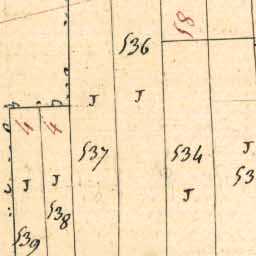 58
536
J
J
4
4
537
534
J
J
J
J
53
538
539